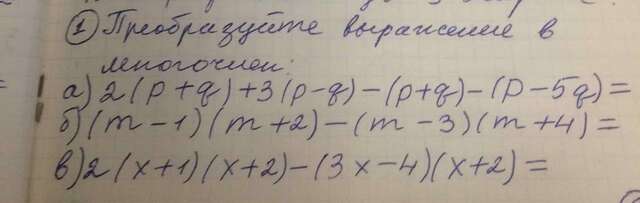 ① Преобразуйте выражение в
многочлен:
а) 2(p+q)+3(p-q)-(p+q)-(p-5q)=
б) (m-1)(m+2)-(m-3)(m+4)=
в) 2(x+1)(x+2)-(3x-4)(x+2)=